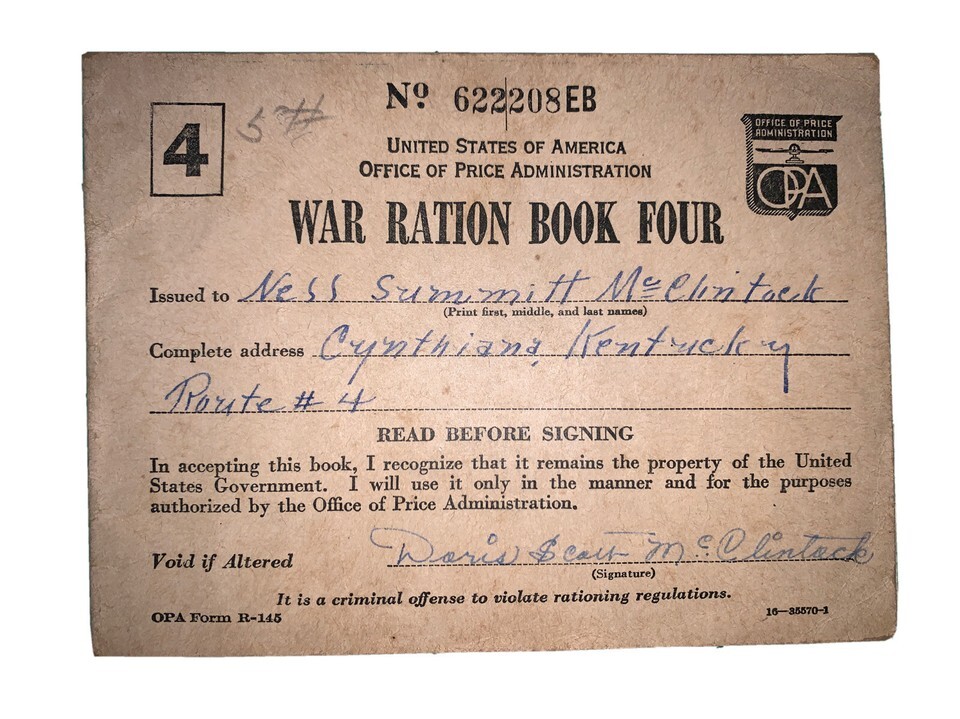 4
5#
Nº 622208EB
UNITED STATES OF AMERICA
OFFICE OF PRICE ADMINISTRATION
OFFICE OF PRICE
ADMINISTRATION
OPA
WAR RATION BOOK FOUR
Issued to Ness Summitt McClintock
(Print first, middle, and last names)
Complete address Cynthiana, Kentucky
Route # 4
READ BEFORE SIGNING
In accepting this book, I recognize that it remains the property of the United
States Government. I will use it only in the manner and for the purposes
authorized by the Office of Price Administration.
Void if Altered Doris Scott McClintock
(Signature)
It is a criminal offense to violate rationing regulations.
OPA Form R-145 16—35570-1